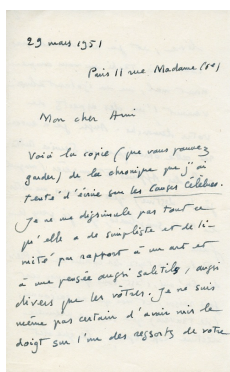 29 mars 1951
Paris 11 rue Madame (6e)
Mon cher Ami
Voici la copie (que vous pouvez
garder) de la chronique que j'ai
tenté d'écrire sur les Causes Célèbres.
Je ne me dissimule pas tout ce
qu'elle a de simpliste et de li-
mité par rapport à un art et
à une pensée aussi subtils, aussi
divers que les vôtres. Je ne suis
même pas certain d'avoir mis le
doigt sur l'un des ressorts de votre